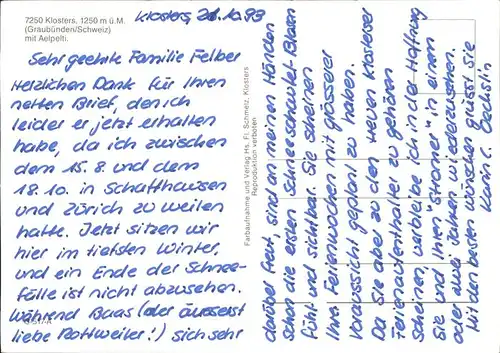 7250 Klosters, 1250 m ü.M.
(Graubünden/Schweiz)
mit Aelpelti.
Klosters, 21.10.93
Sehr geehrte Familie Felber
Herzlichen Dank für Ihren
netten Brief, den ich
leider erst jetzt erhalten
habe, da ich zwischen
dem 15.8. und dem
18.10. in Schaffhausen
und Zürich zu weilen
hatte. Jetzt sitzen wir
hier im tiefsten Winter,
und ein Ende der Schnee-
fälle ist nicht abzusehen.
Während Baas (der äusserst
liebe Rottweiler!) sich sehr
Farbaufnahme und Verlag Hs. Fl. Schmelz, Klosters
Reproduktion verboten
darüber freut, sind an meinen Händen
schon die ersten Schneeschaufel-Blasen
fühl und sichtbar. Sie scheinen
Ihre Ferienwochen mit grösserer
Voraussicht geplant zu haben.
Da Sie aber zu den treuen Klosterser
Ferienaufenthalter zu gehören
scheinen, verbleibe ich in der Hoffnung
Sie und Ihren "Stroiner" in einem
oder zwei Jahren wiederzusehen.
Mit den besten Wünschen grüsst Sie
Karin C. Oechslin